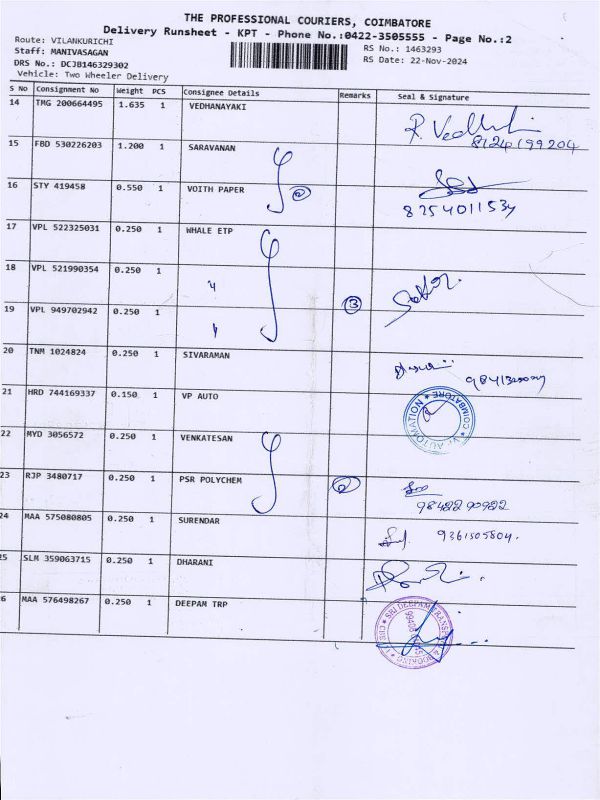 THE PROFESSIONAL COURIERS, COIMBATORE
Delivery Runsheet - KPT - Phone No.:0422-3505555 - Page No.:2
Route: VILANKURICHI
Staff: MANIVASAGAN RS No.: 1463293
DRS No.: DCJB146329302 RS Date: 22-Nov-2024
Vehicle: Two Wheeler Delivery
S No Consignment No Weight PCS Consignee Details Remarks Seal & Signature
14 TMG 200664495 1.635 1 VEDHANAYAKI
8124199204
15 FBD 530226203 1.200 1 SARAVANAN
16 STY 419458 0.550 1 VOITH PAPER 2
8254011534
17 VPL 522325031 0.250 1 WHALE ETP
18 VPL 521990354 0.250 1 "
19 VPL 949702942 0.250 1 " 3
20 TNM 1024824 0.250 1 SIVARAMAN
21 HRD 744169337 0.150 1 VP AUTO
AUTOMATION * COIMBATORE
22 MYD 3056572 0.250 1 VENKATESAN
23 RJP 3480717 0.250 1 PSR POLYCHEM 2
24 MAA 575080805 0.250 1 SURENDAR 9361505804.
25 SLM 359063715 0.250 1 DHARANI
26 MAA 576498267 0.250 1 DEEPAM TRP
SRI DEEPAM TRANSP